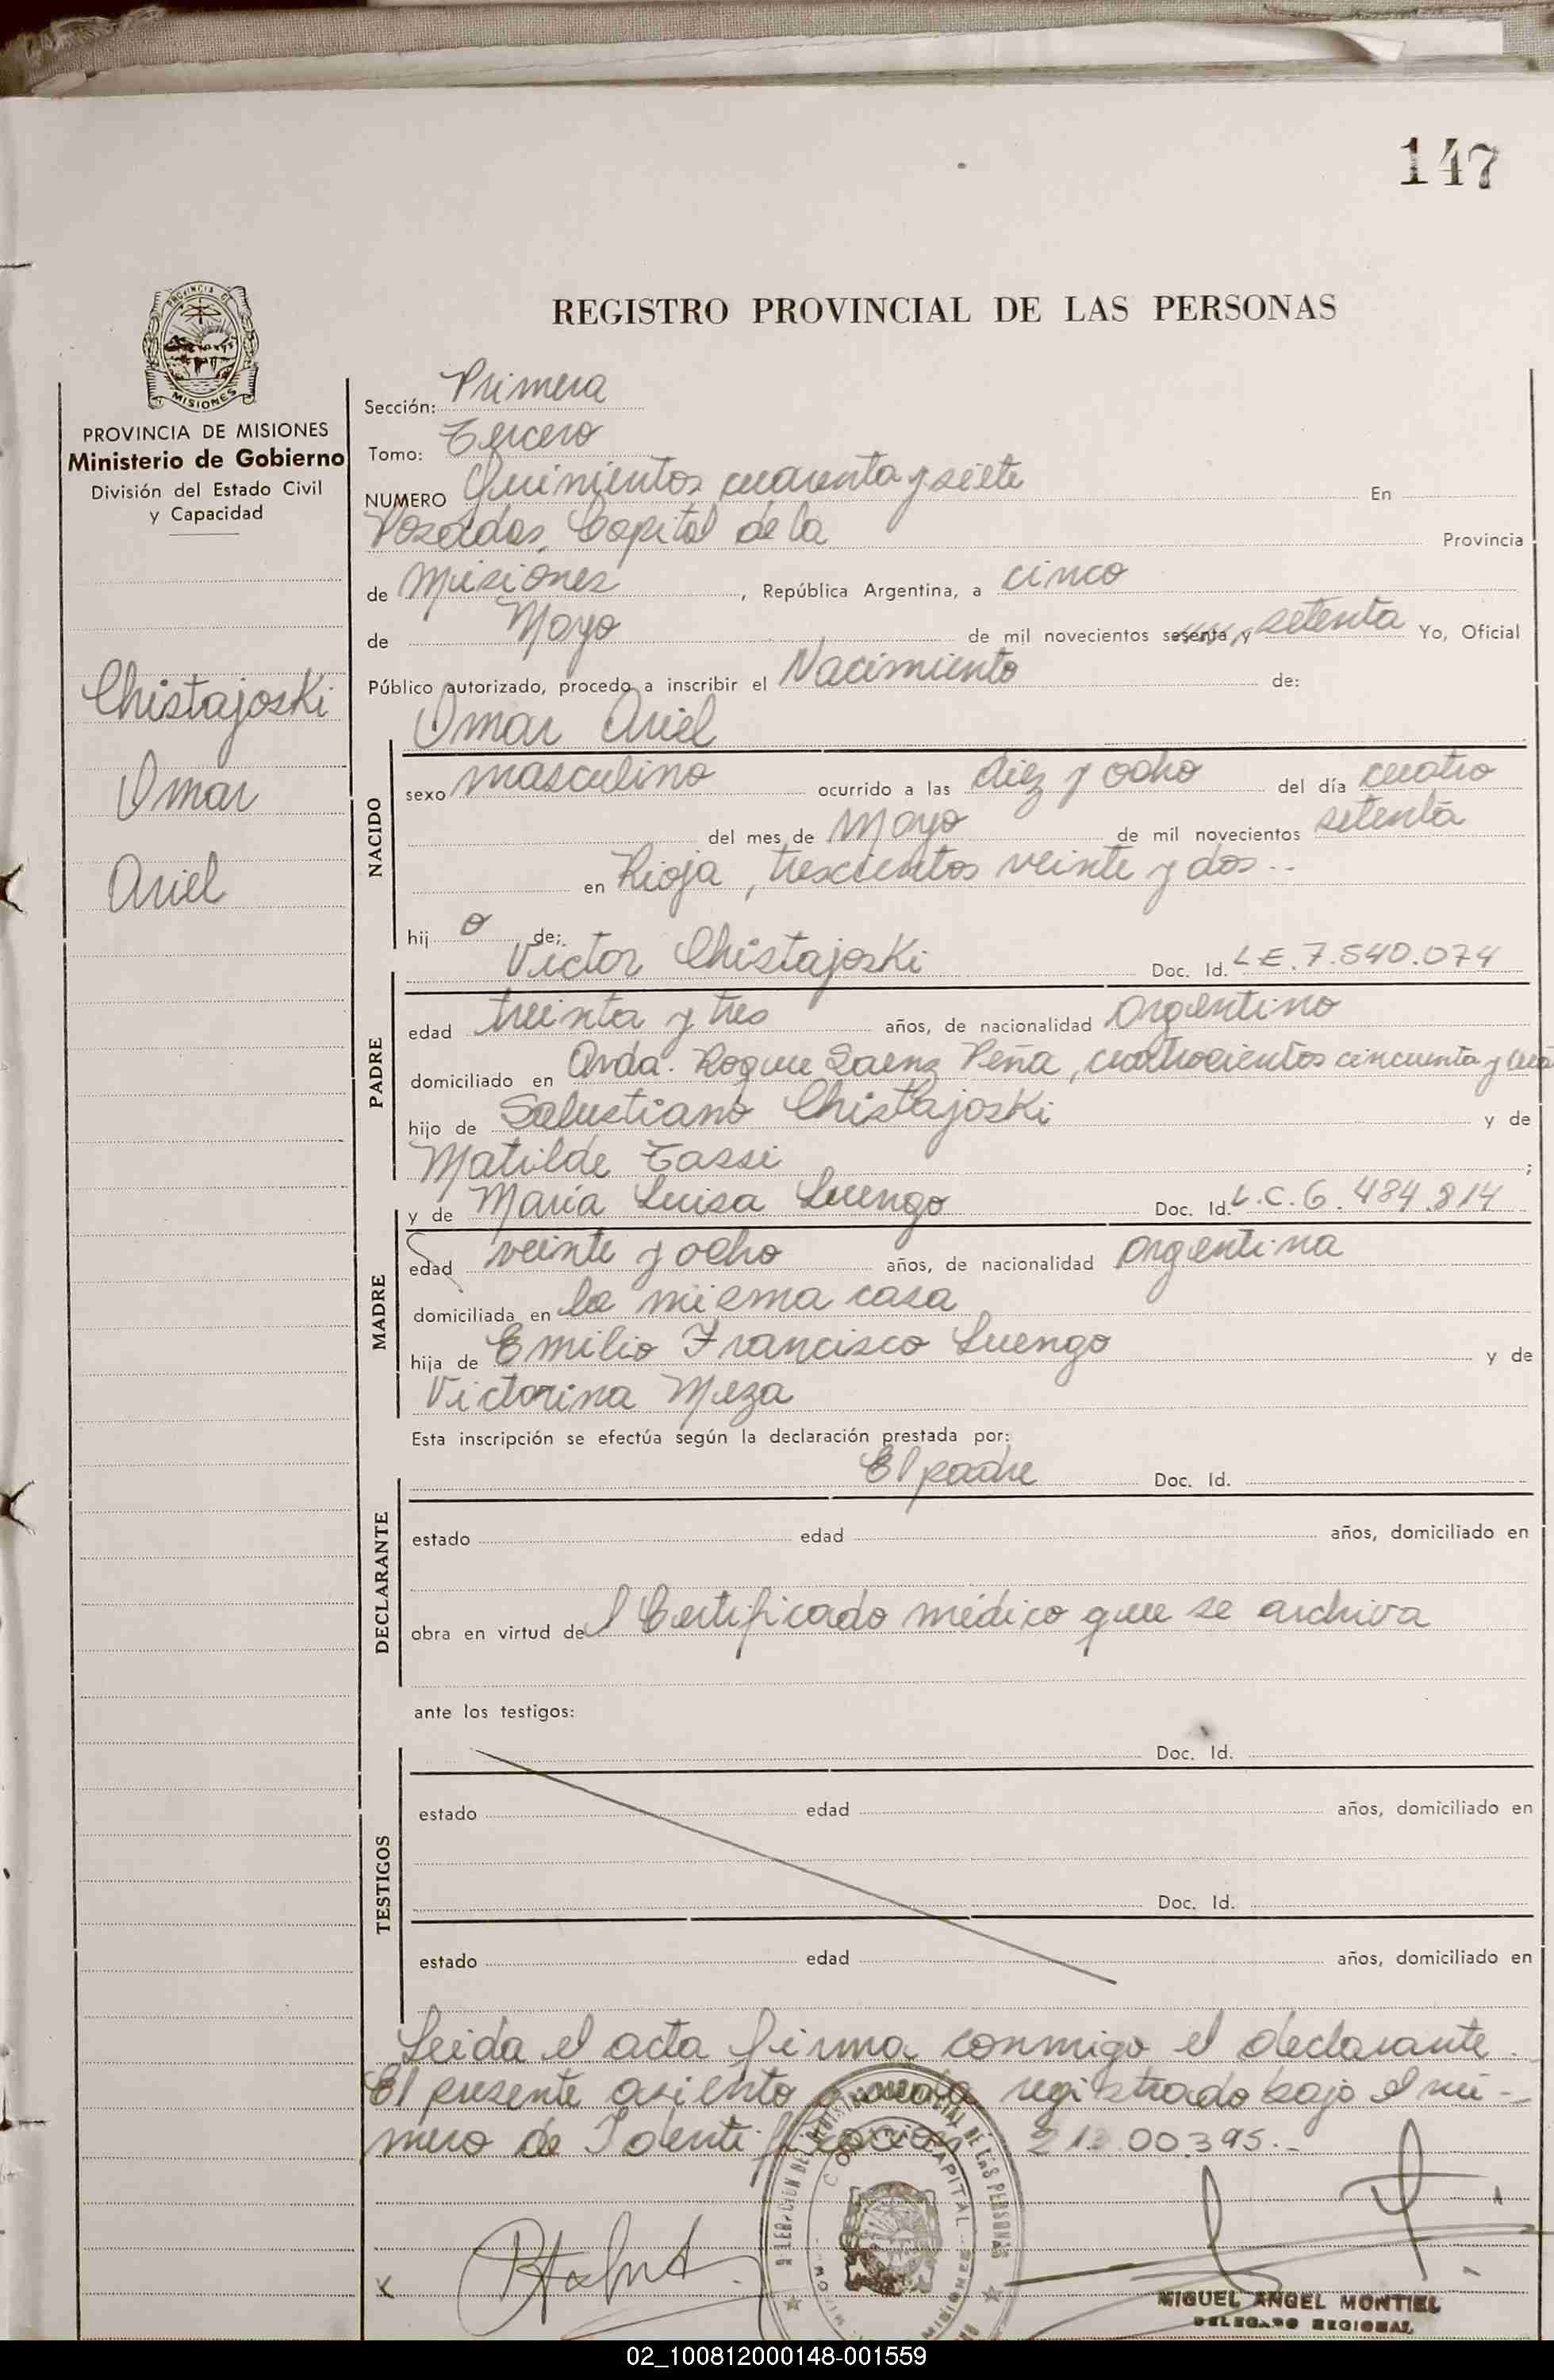 147
PROVINCIA DE
MISIONES
PROVINCIA DE MISIONES
Ministerio de Gobierno
División del Estado Civil
y Capacidad
Chistajoski
Omar
Ariel
REGISTRO PROVINCIAL DE LAS PERSONAS
Sección: Primera
Tomo: Tercero
NUMERO Quinientos cuarenta y siete En
Posadas, Capital de la Provincia
de Misiones, República Argentina, a cinco
de Mayo de mil novecientos sesenta y setenta Yo, Oficial
Público autorizado, procedo a inscribir el Nacimiento de:
Omar Ariel
NACIDO
sexo masculino ocurrido a las diez y ocho del día cuatro
del mes de Mayo de mil novecientos setenta
en Rioja, trescientos veinte y dos..
hij o de:
Victor Chistajoski Doc. Id. L.E. 7.540.074
PADRE
edad treinta y tres años, de nacionalidad argentino
domiciliado en Avda. Roque Saenz Peña, cuatrocientos cincuenta y
hijo de Salustiano Chistajoski y de
Matilde Tassi ;
y de María Luisa Luengo Doc. Id. L.C. 6.484.814
MADRE
edad veinte y ocho años, de nacionalidad argentina
domiciliada en la misma casa
hija de Emilio Francisco Luengo y de
Victorina Meza
Esta inscripción se efectúa según la declaración prestada por:
El padre Doc. Id.
DECLARANTE
estado edad años, domiciliado en
obra en virtud del Certificado médico que se archiva
ante los testigos:
Doc. Id.
TESTIGOS
estado edad años, domiciliado en
Doc. Id.
estado edad años, domiciliado en
Leida el acta firma conmigo el declarante.
El presente asiento queda registrado bajo el nú-
mero de Identificación 21.00395.-
MIGUEL ANGEL MONTIEL
DELEGADO REGIONAL
02_100812000148-001559